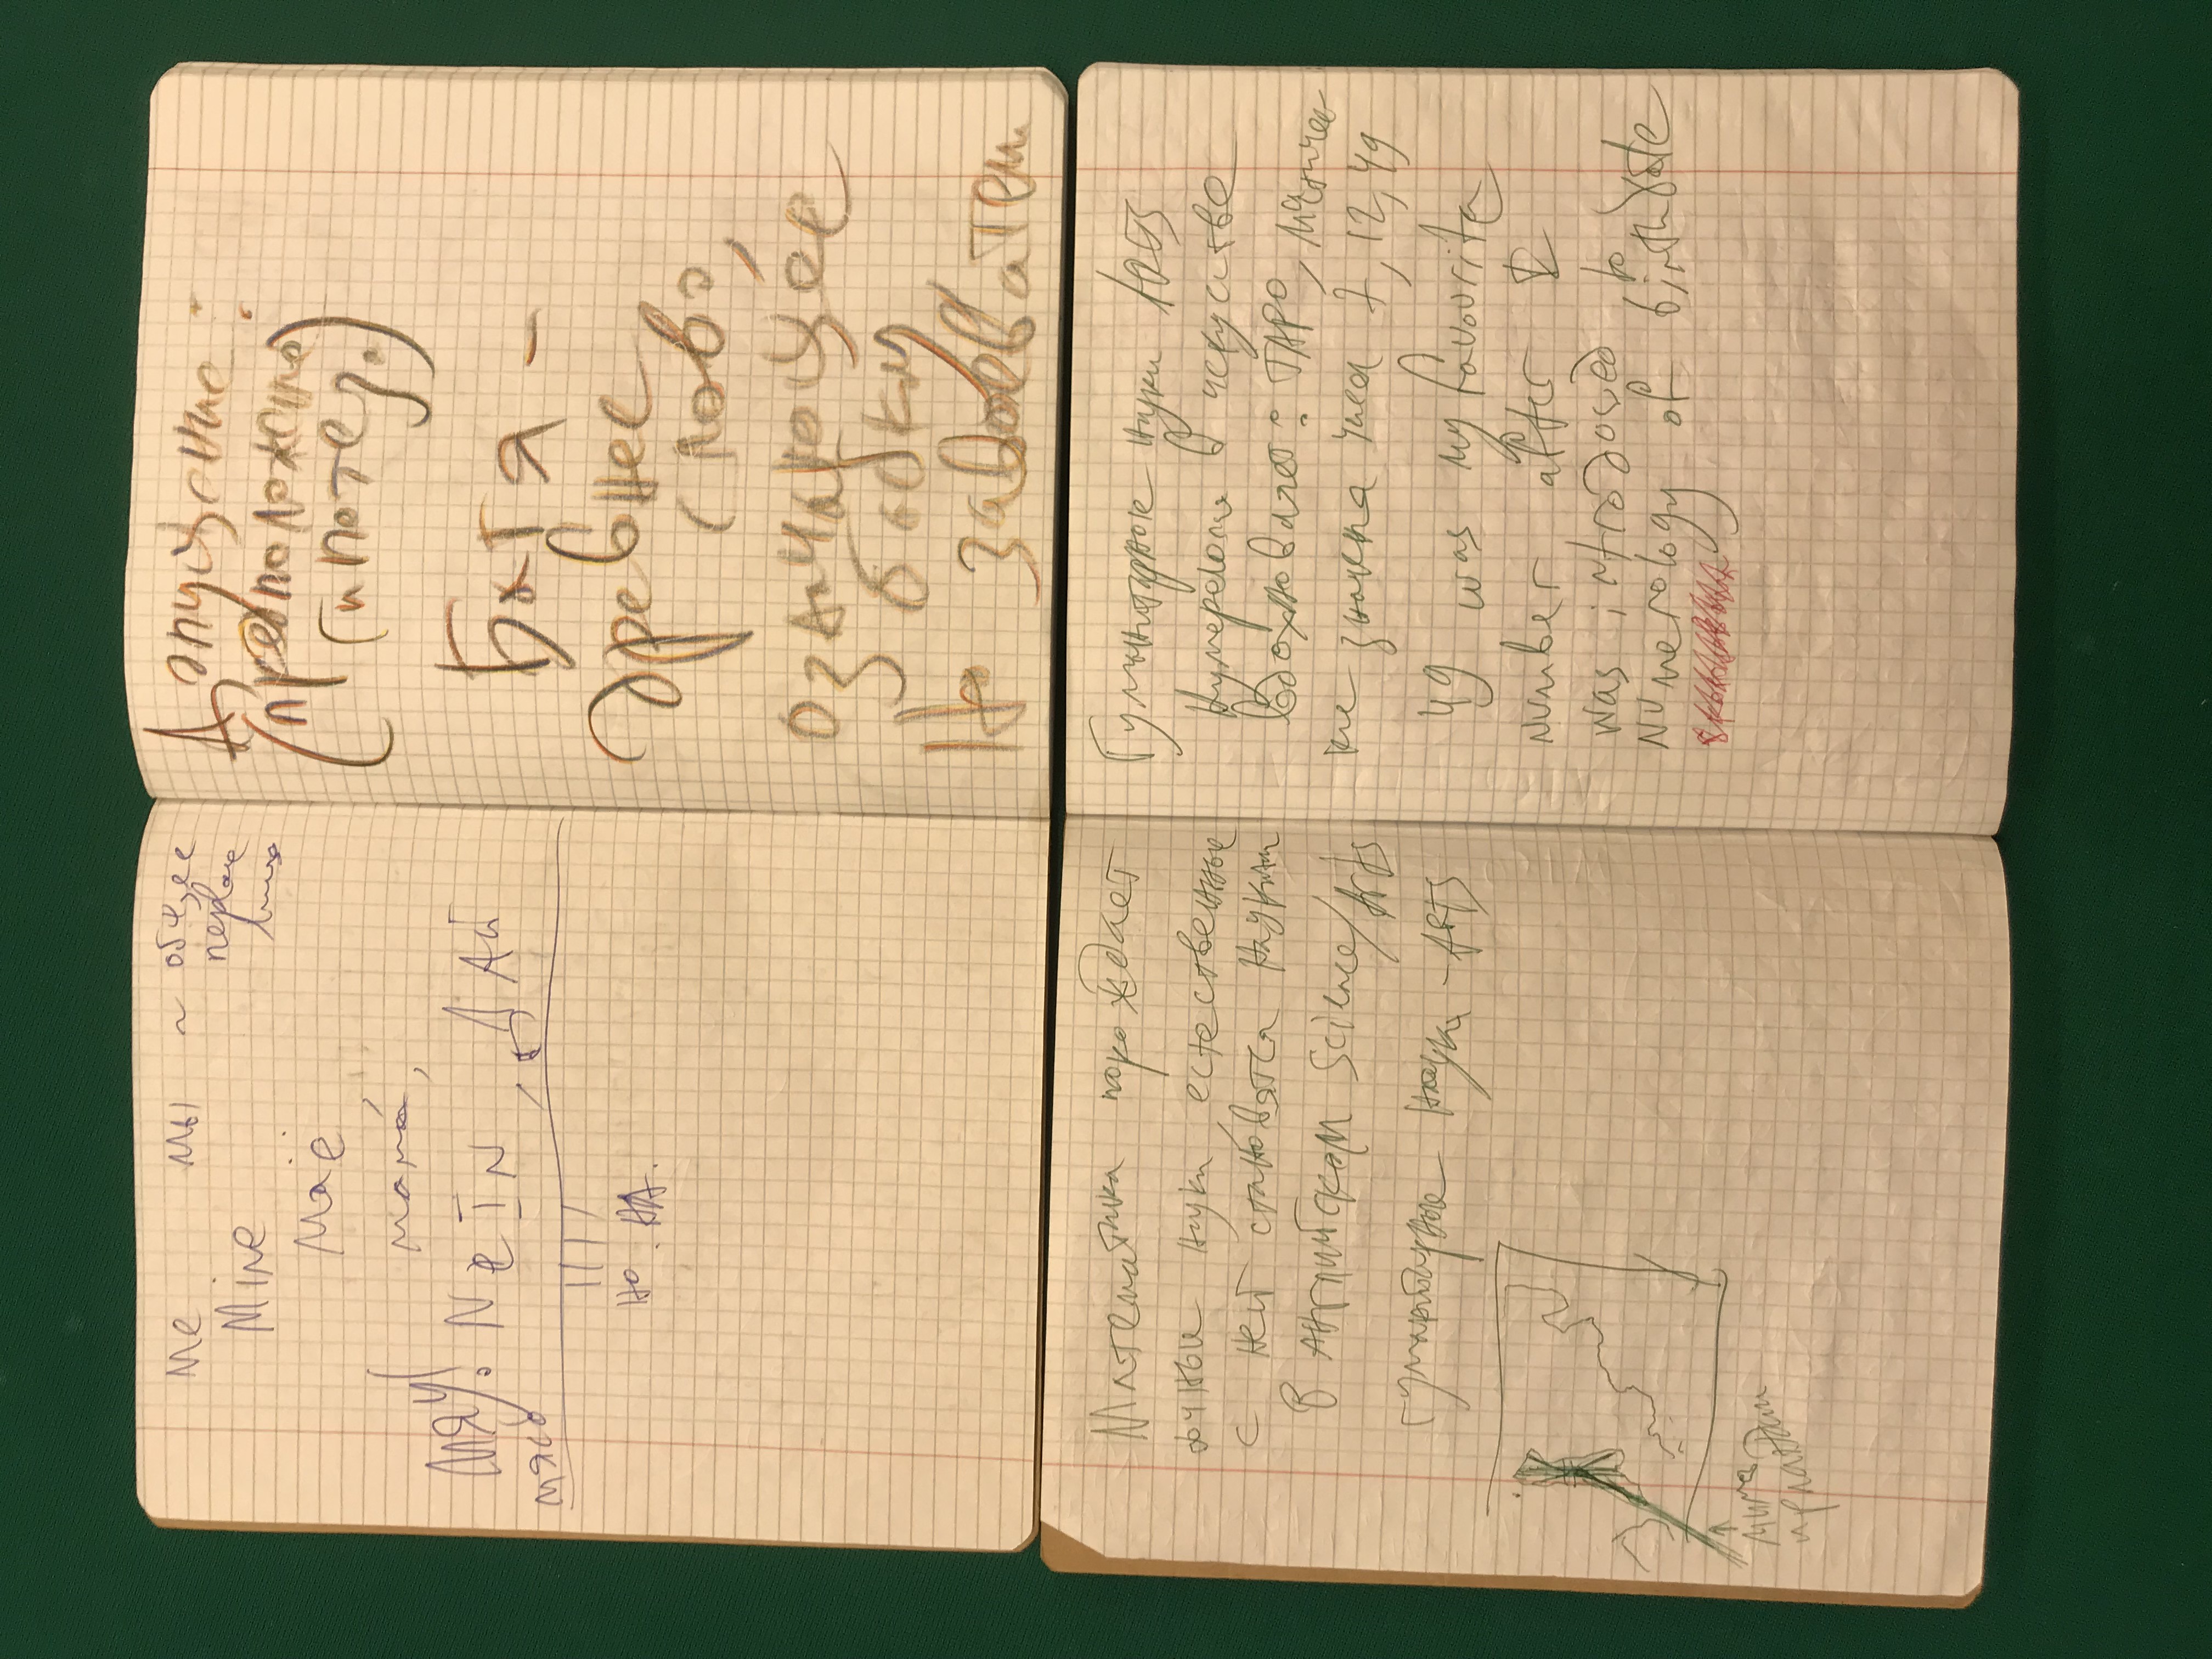 me мы ~ общее
первое
лицо
Mine
Маё
мамá,
МЯУ! NeIN, ДАЙ
мясо
но. АА.
Допущение:
(предположение
гипотез.)
Батя -
древнее
слово,
означающее
бабку
Но завоеватели
Математика порождает
науки, естественные
с ней становятся науками
В английском Science/Arts
гуманитарные науки - ARTS
Гуманитарные науки /ARTS
Нумерология в искусстве
вдохновляет: ТАРО, Магичес
кие значения чисел 7, 12, 49
49 was my favourite
number after I
was introdused to
numerology of birthdate